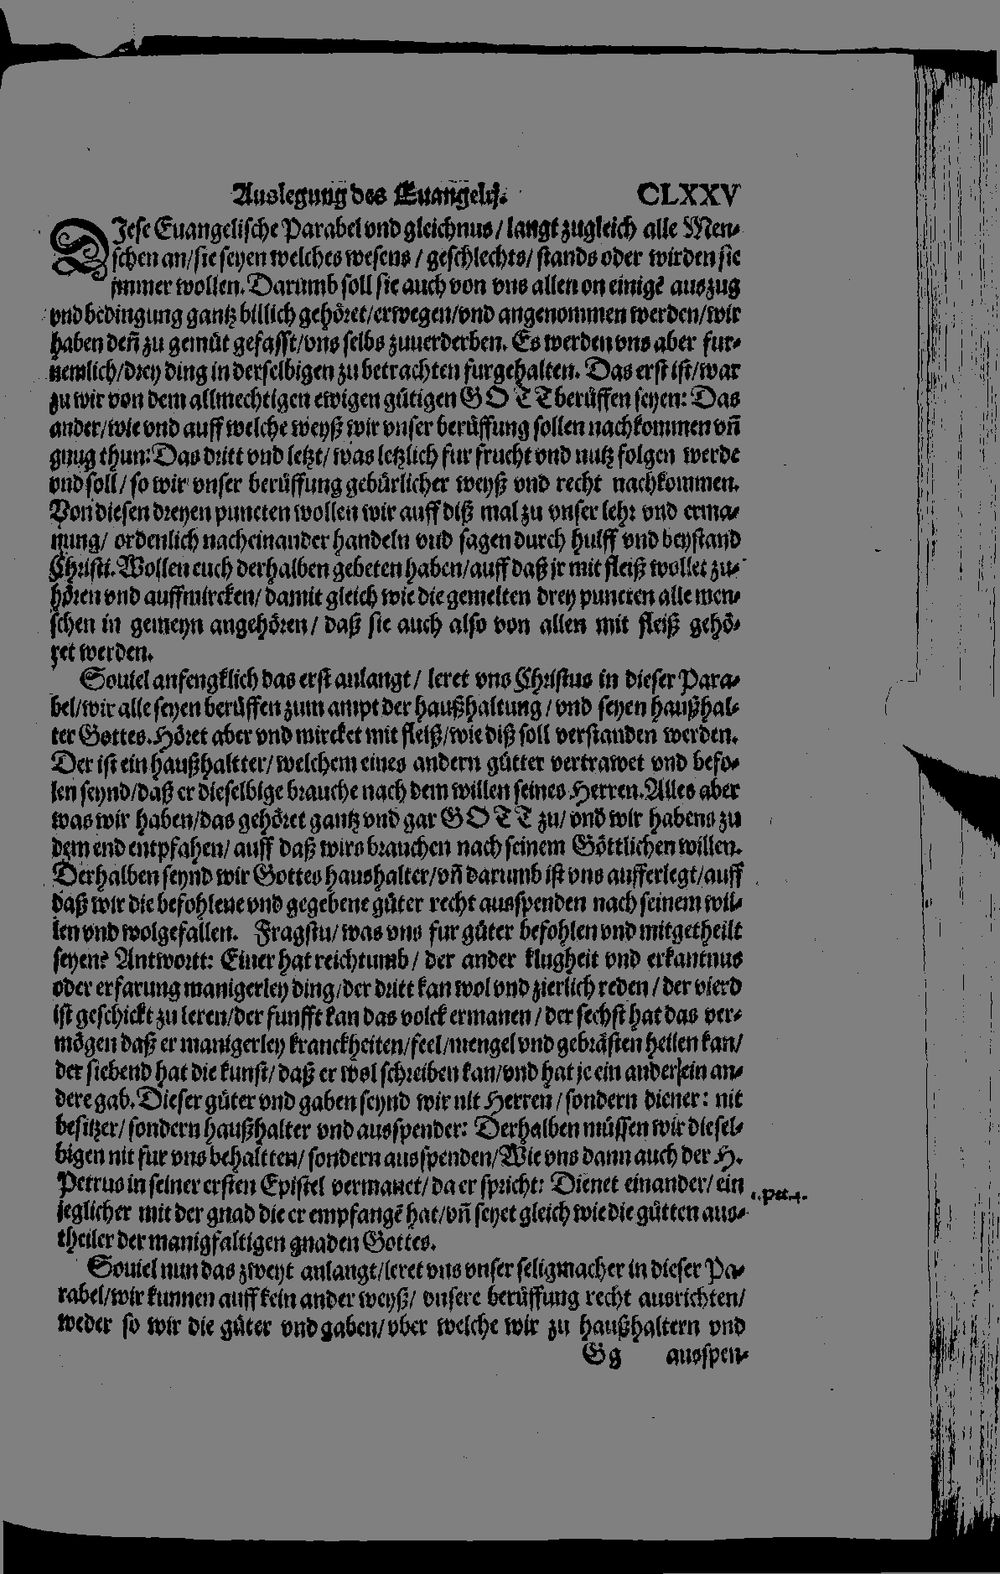 Auslegung des Euangelij. CLXXV
DJese Euangelische Parabel vnd gleichnus / langt zugleich alle Men-
schen an/sie seyen welches wesens / geschlechts/ stands oder wirden sie
jmmer wollen. Darumb soll sie auch von vns allen on einigē auszug
vnd bedingung gantz billich gehöret/erwegen/vnd angenommen werden/wir
haben deñ zu gemüt gefasst/vns selbs zuuerderben. Es werden vns aber fur-
nemlich/drey ding in derselbigen zu betrachten furgehalten. Das erst ist/war
zu wir von dem allmechtigen ewigen gütigen GOTT berüffen seyen: Das
ander/wie vnd auff welche weyß wir vnser berüffung sollen nachkommen vñ
gnug thun: Das dritt vnd letzt/ was letzlich fur frucht vnd nutz folgen werde
vnd soll/ so wir vnser berüffung gebürlicher weyß vnd recht nachkommen.
Von diesen dreyen puncten wollen wir auff diß mal zu vnser lehr vnd erma-
nung/ ordenlich nacheinander handeln vnd sagen durch hulff vnd beystand
Christi. Wollen euch derhalben gebeten haben/auff daß jr mit fleiß wollet zu-
hören vnd auffmircken/ damit gleich wie die gemelten drey puncten alle men-
schen in gemeyn angehören/ daß sie auch also von allen mit fleiß gehö-
ret werden.
Souiel anfengklich das erst anlangt/ leret vns Christus in dieser Para-
bel/wir alle seyen berüffen zum ampt der haußhaltung/ vnd seyen haußhal-
ter Gottes. Höret aber vnd mircket mit fleiß/wie diß soll verstanden werden.
Der ist ein haußhaltter/ welchem eines andern gütter vertrawet vnd befo-
len seynd/daß er dieselbige brauche nach dem willen seines Herren. Alles aber
was wir haben/das gehöret gantz vnd gar GOTT zu/ vnd wir habens zu
dem end entpfahen/ auff daß wirs brauchen nach seinem Göttlichen willen.
Derhalben seynd wir Gottes haushalter/vñ darumb ist vns aufferlegt/auff
daß wir die befohlene vnd gegebene güter recht ausspenden nach seinem wil-
len vnd wolgefallen. Fragstu/ was vns fur güter befohlen vnd mitgetheilt
seyen? Antwortt: Einer hat reichtumb/ der ander klugheit vnd erkantnus
oder erfarung manigerley ding/der dritt kan wol vnd zierlich reden / der vierd
ist geschickt zu leren/der funfft kan das volck ermanen / der sechst hat das ver-
mögen daß er manigerley kranckheiten/feel/mengel vnd gebrästen heilen kan/
der siebend hat die kunst/ daß er wol schreiben kan/vnd hat je ein ander ein an-
dere gab. Dieser güter vnd gaben seynd wir nit Herren / sondern diener: nit
besitzer/ sondern haußhalter vnd ausspender: Derhalben müssen wir diesel-
bigen nit fur vns behaltten/ sondern ausspenden/ Wie vns dann auch der H.
Petrus in seiner ersten Epistel vermanet/ da er spricht: Dienet einander/ ein
1. Pet. 4.
jeglicher mit der gnad die er empfangē hat/vñ seyet gleich wie die gütten aus-
theiler der manigfaltigen gnaden Gottes.
Souiel nun das zweyt anlangt/leret vns vnser seligmacher in dieser Pa-
rabel/wir kunnen auff kein ander weyß/ vnsere berüffung recht ausrichten/
weder so wir die güter vnd gaben/ vber welche wir zu haußhaltern vnd
Gg ausspen-